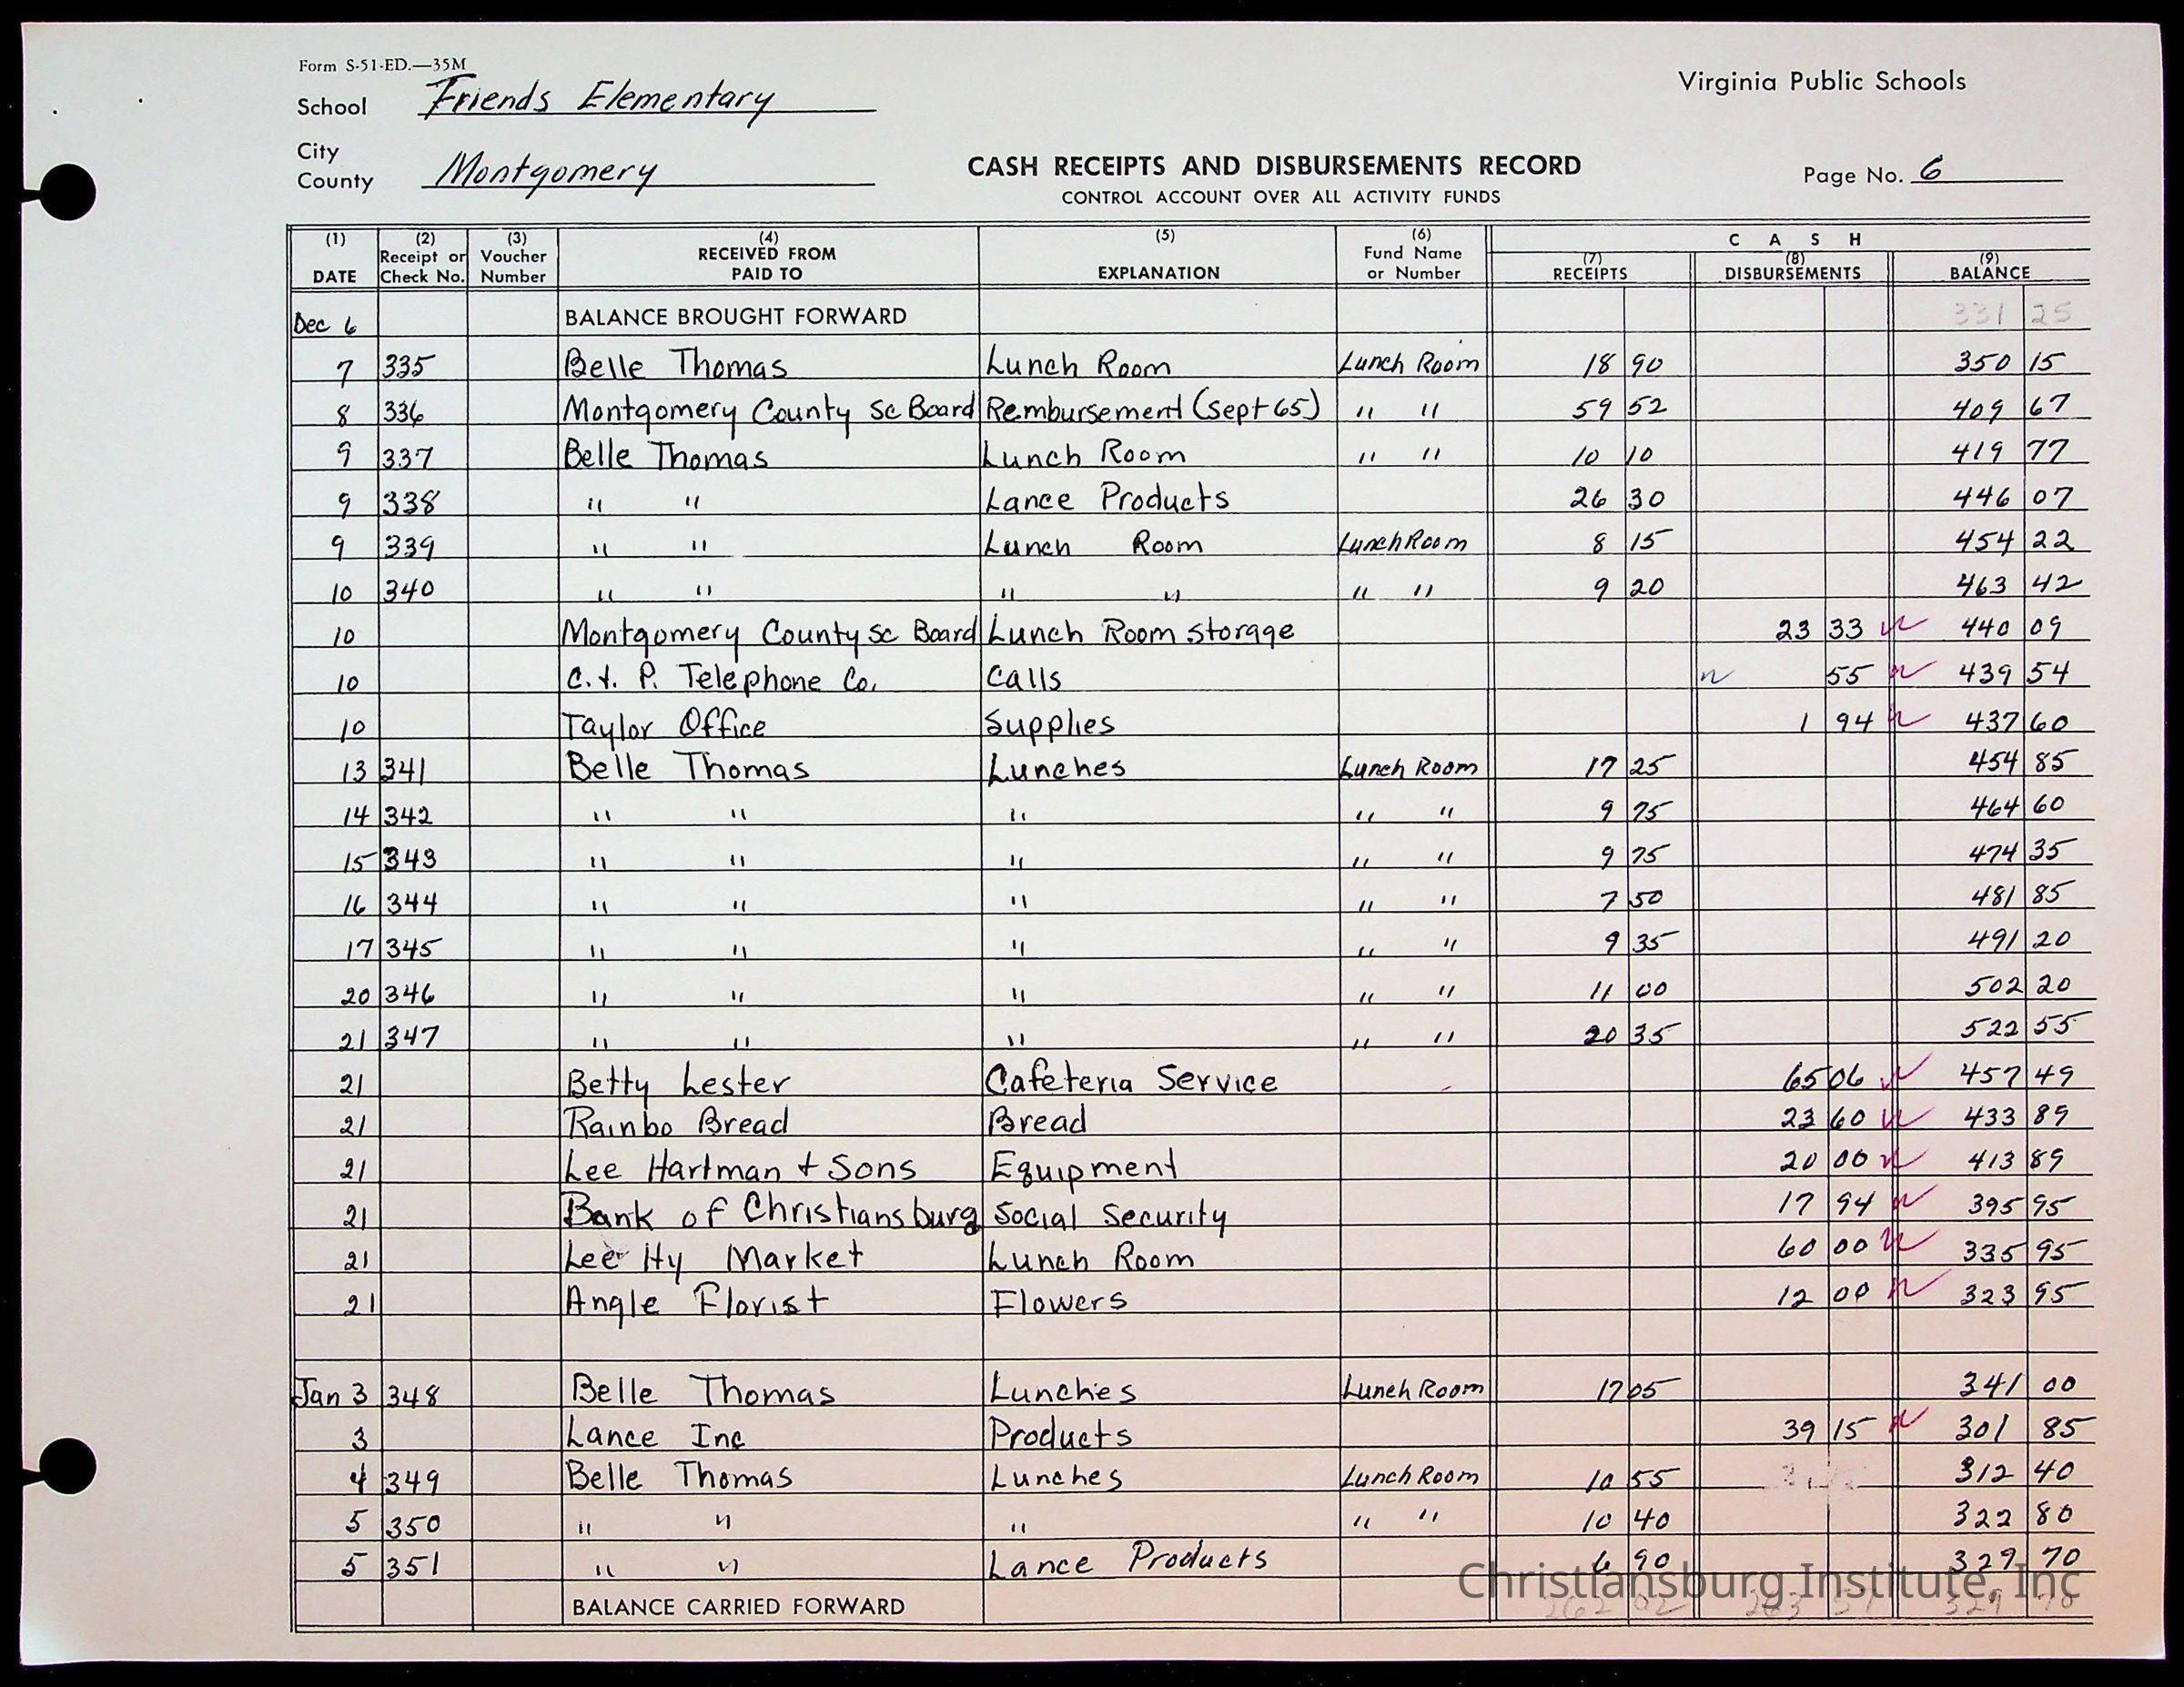 Form S-51-ED.—35M
School Friends Elementary
Virginia Public Schools
City
County Montgomery
CASH RECEIPTS AND DISBURSEMENTS RECORD
CONTROL ACCOUNT OVER ALL ACTIVITY FUNDS
Page No. 6
(1) DATE (2) Receipt or Check No. (3) Voucher Number (4) RECEIVED FROM PAID TO (5) EXPLANATION (6) Fund Name or Number CASH (7) RECEIPTS (8) DISBURSEMENTS (9) BALANCE
Dec 6 BALANCE BROUGHT FORWARD 331 25
7 335 Belle Thomas Lunch Room Lunch Room 18 90 350 15
8 336 Montgomery County Sc Board Rembursement (Sept 65) " " 59 52 409 67
9 337 Belle Thomas Lunch Room " " 10 10 419 77
9 338 " " Lance Products 26 30 446 07
9 339 " " Lunch Room Lunch Room 8 15 454 22
10 340 " " " " " " 9 20 463 42
10 Montgomery County Sc Board Lunch Room Storage 23 33 440 09
10 C. & P. Telephone Co. Calls 55 439 54
10 Taylor Office Supplies 1 94 437 60
13 341 Belle Thomas Lunches Lunch Room 17 25 454 85
14 342 " " " " " 9 75 464 60
15 343 " " " " " 9 75 474 35
16 344 " " " " " 7 50 481 85
17 345 " " " " " 9 35 491 20
20 346 " " " " " 11 00 502 20
21 347 " " " " " 20 35 522 55
21 Betty Lester Cafeteria Service 65 06 457 49
21 Rainbo Bread Bread 23 60 433 89
21 Lee Hartman + Sons Equipment 20 00 413 89
21 Bank of Christiansburg Social Security 17 94 395 95
21 Lee Hy Market Lunch Room 60 00 335 95
21 Angle Florist Flowers 12 00 323 95
Jan 3 348 Belle Thomas Lunches Lunch Room 17 05 341 00
3 Lance Inc Products 39 15 301 85
4 349 Belle Thomas Lunches Lunch Room 10 55 312 40
5 350 " " " " " 10 40 322 80
5 351 " " Lance Products 6 90 329 70
BALANCE CARRIED FORWARD 262 02 263 57 329 70
Christiansburg Institute, Inc